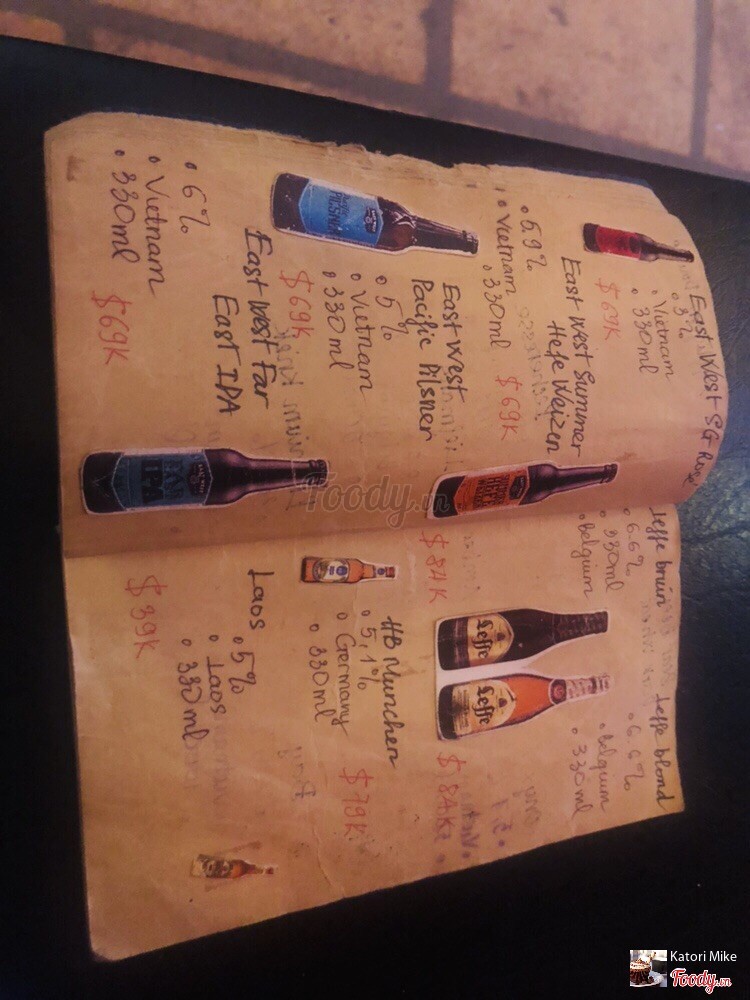 East West SG Rosé
3%
Vietnam
330ml
$69K
East West Summer
Hefe Weizen
5.9%
Vietnam
330ml
$69K
East West
Pacific Pilsner
5%
Vietnam
330ml
$69K
East West Far
East IPA
6%
Vietnam
330ml
$69K
Leffe bruin
6.6%
330ml
Belgium
$84K
Leffe blond
6.6%
Belgium
330ml
$84K
Leffe
Leffe
HB Munchen
5,1%
Germany
330ml
$79K
Laos
5%
Laos
330ml
$39K
PILSNER
IPA
Foody.vn
Katori Mike
Foody.vn